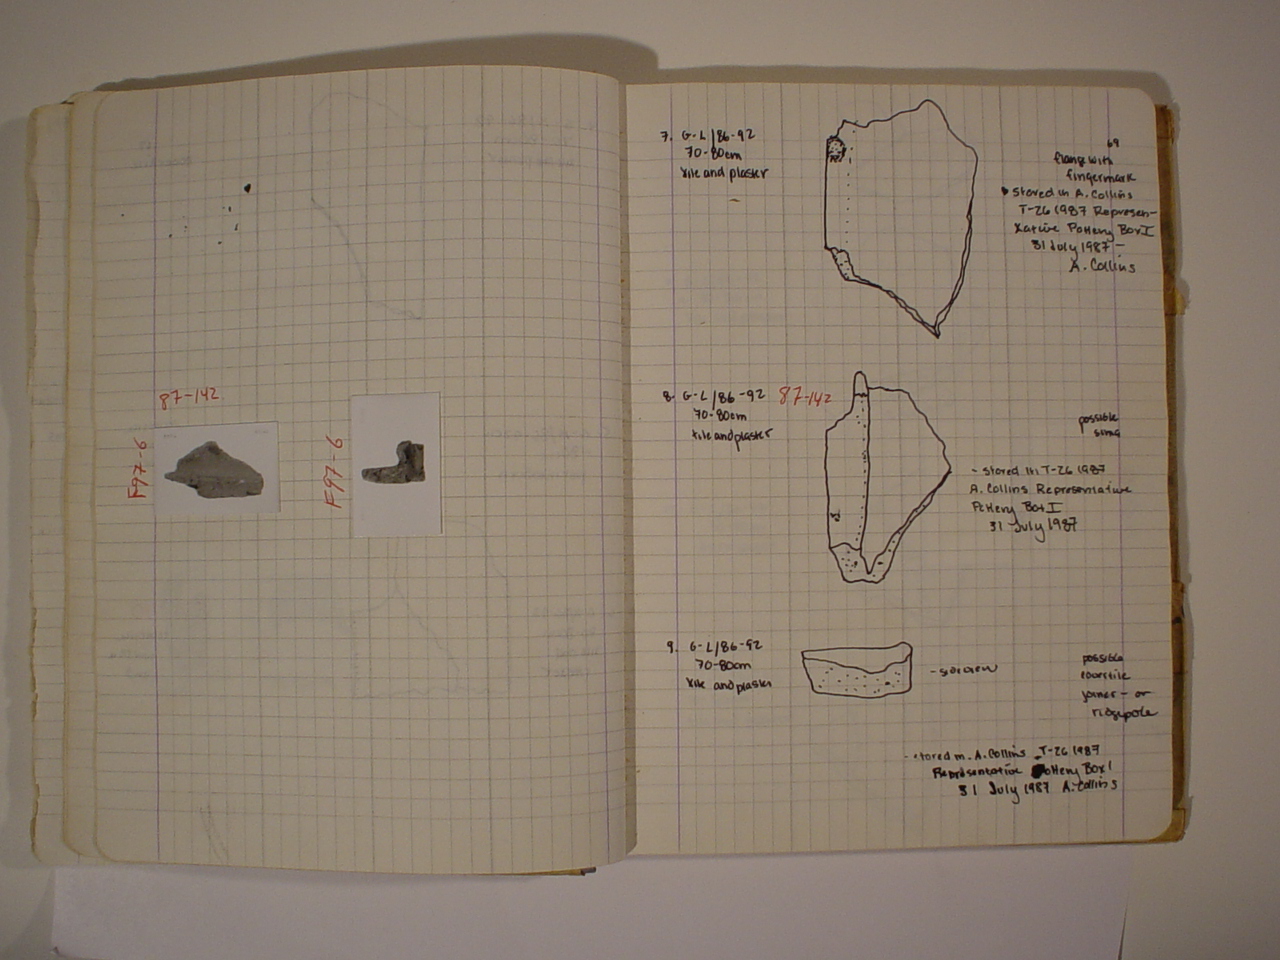 87-142
F97-6
F97-6
69
7. G-L/86-92
70-80cm
tile and plaster
flange with
fingermark
stored in A. Collins
T-26 1987 Represen-
tative Pottery Box I
31 July 1987 -
A. Collins
8. G-L/86-92 87-142
70-80cm
tile and plaster
possible
sima
- stored in T-26 1987
A. Collins Representative
Pottery Box I
31 July 1987
9. G-L/86-92
70-80cm
tile and plaster
possible
joiner - or
ridgepole
- stored in A. Collins T-26 1987
Representative Pottery Box 1
31 July 1987 A. Collins